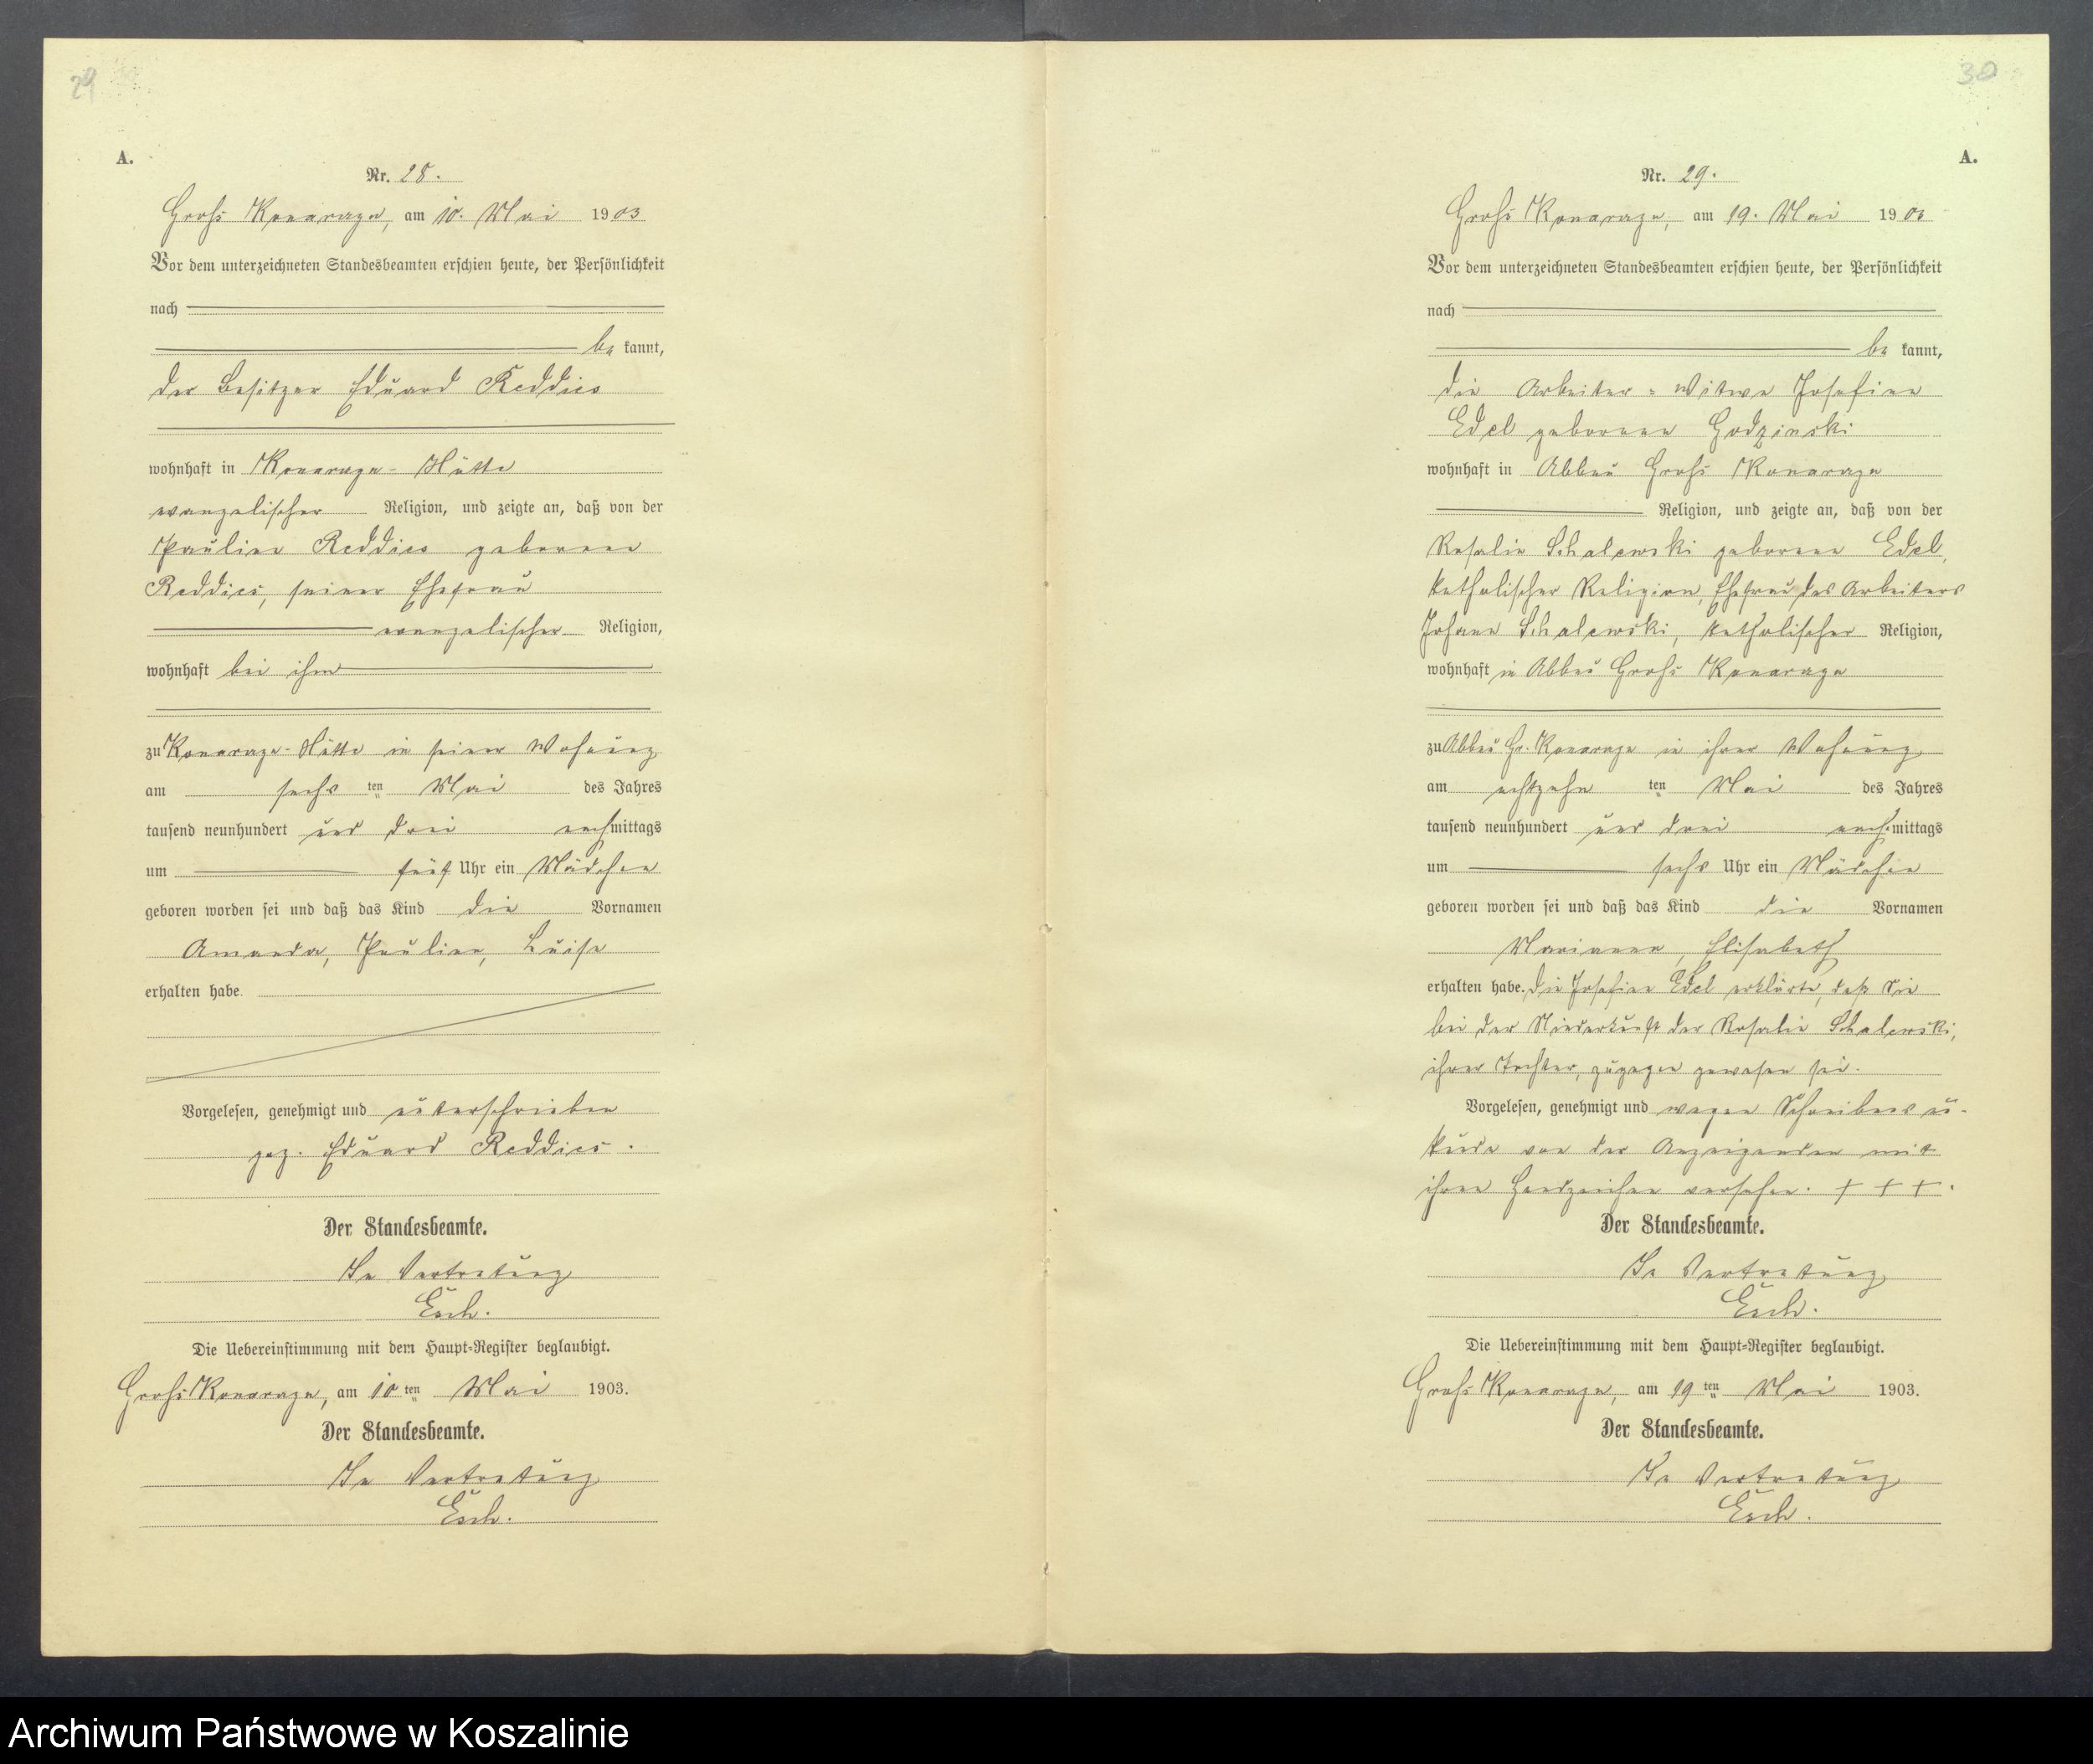 29
A.
Nr. 28.
Groß Konarzyn, am 10. Mai 1903
Vor dem unterzeichneten Standesbeamten erschien heute, der Persönlichkeit
nach
be kannt,
der Besitzer Eduard Reddies
wohnhaft in Konarzyn-Hütte
evangelischer Religion, und zeigte an, daß von der
Pauline Reddies geborene
Reddies, seiner Ehefrau
evangelischer Religion,
wohnhaft bei ihm
zu Konarzyn-Hütte in seiner Wohnung
am sechs ten Mai des Jahres
tausend neunhundert und drei nachmittags
um fünf Uhr ein Mädchen
geboren worden sei und daß das Kind die Vornamen
Amanda, Pauline, Luise
erhalten habe.
Vorgelesen, genehmigt und unterschrieben
gez. Eduard Reddies.
Der Standesbeamte.
In Vertretung
Esch.
Die Uebereinstimmung mit dem Haupt-Register beglaubigt.
Groß Konarzyn, am 10 ten Mai 1903.
Der Standesbeamte.
In Vertretung
Esch.
30
A.
Nr. 29.
Groß Konarzyn, am 19. Mai 1903
Vor dem unterzeichneten Standesbeamten erschien heute, der Persönlichkeit
nach
be kannt,
die Arbeiter-Witwe Josefine
Edel geborene Godzinski
wohnhaft in Abbau Groß Konarzyn
Religion, und zeigte an, daß von der
Rosalie Schalewski geborene Edel,
katholischer Religion, Ehefrau des Arbeiters
Johann Schalewski, katholischer Religion,
wohnhaft in Abbau Groß Konarzyn
zu Abbau Gr. Konarzyn in ihrer Wohnung
am achtzehn ten Mai des Jahres
tausend neunhundert und drei nachmittags
um sechs Uhr ein Mädchen
geboren worden sei und daß das Kind die Vornamen
Marianna, Elisabeth
erhalten habe. Die Josefine Edel erklärte, daß Sie
bei der Niederkunft der Rosalie Schalewski,
ihrer Tochter, zugegen gewesen sei.
Vorgelesen, genehmigt und wegen Schreibens un-
kunde von der Anzeigenden mit
ihren Handzeichen versehen. + + +.
Der Standesbeamte.
In Vertretung
Esch.
Die Uebereinstimmung mit dem Haupt-Register beglaubigt.
Groß Konarzyn, am 19 ten Mai 1903.
Der Standesbeamte.
In Vertretung
Esch.
Archiwum Państwowe w Koszalinie